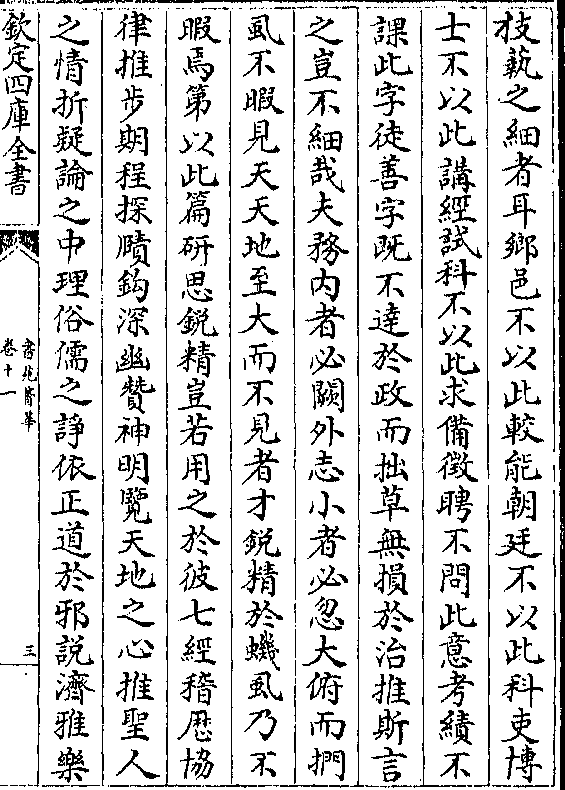 技藝之細者耳鄉邑不以此較能朝廷不以此科吏博
士不以此講經試科不以此求備徵聘不問此意考績不
課此字徒善字既不達於政而拙草無損於治推斯言
之豈不細哉夫務内者必闕外志小者必忽大俯而捫
虱不暇見天天地至大而不見者才鋭精於蟣虱乃不
暇焉第以此篇研思鋭精豈若用之於彼七經稽厯協
律推步期程探賾鈎深幽贊神明覽天地之心推聖人
之情折疑論之中理俗儒之諍依正道於邪説濟雅樂
欽定四庫全書
書苑菁華
卷十一
三